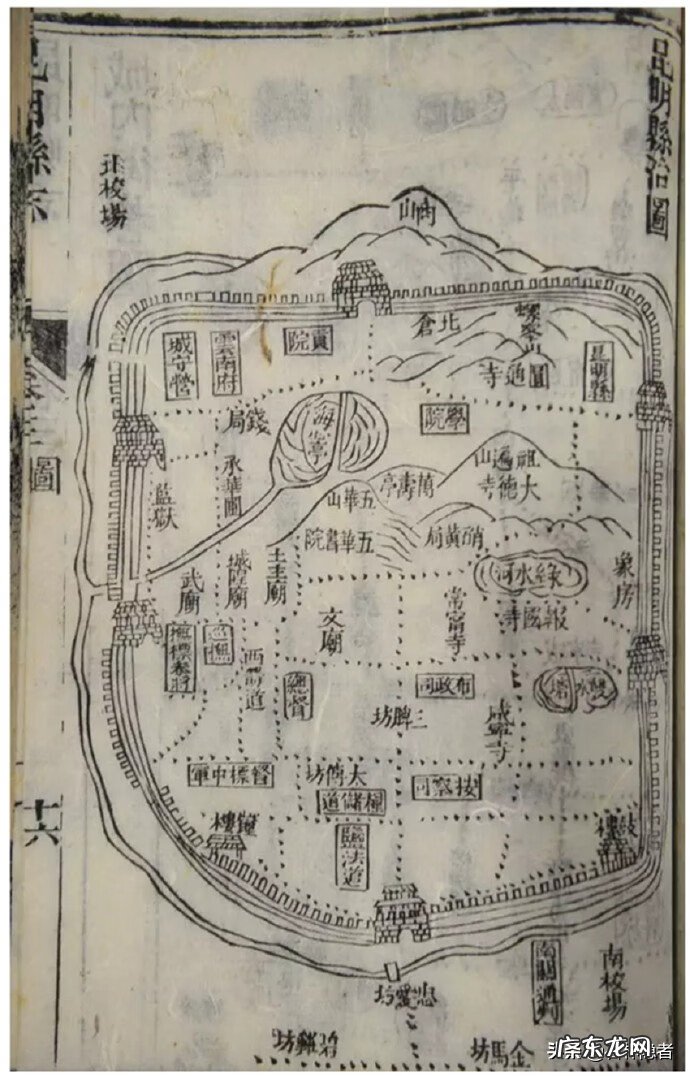 昆明縣治圖
北校場
商山
螺峯山
北倉
貢院
雲南府
城守營
昆明縣
圓通寺
學院
錢局
海心亭
承華圃
監獄
祖遍山
大德寺
萬壽亭
五華山
五華書院
硝黃局
土主廟
城隍廟
武廟
綠水河
象房
報國寺
常寧寺
文廟
巡撫
撫標參將
西門道
總督
布政司
三牌坊
雙塔
水
督標中軍
太傅坊
糧儲道
按察司
鐘樓
鼓樓
鹽法道
南關通判
南校場
忠愛坊
碧雞坊
金馬坊
圖
十六